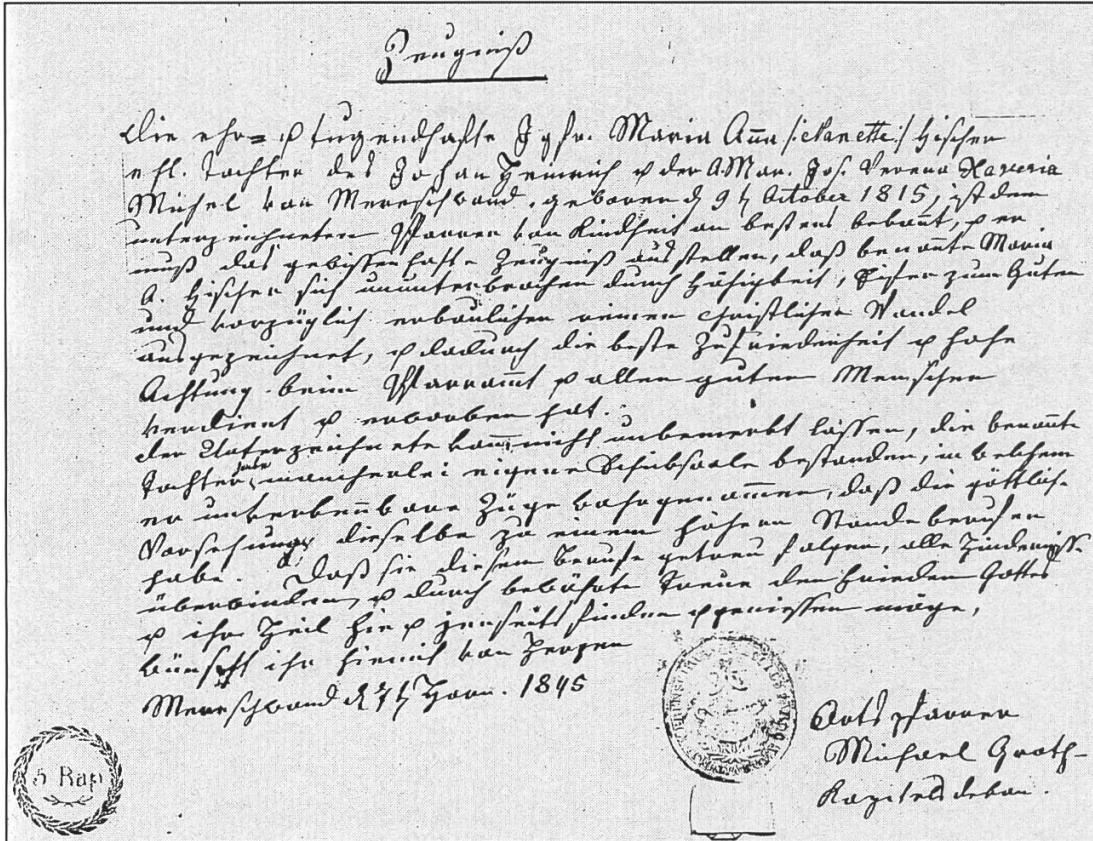 Zeugniß
Die ehr= u tugendhafte Jgfr. Maria Anna /:Nanette:/ Fischer
ehl. Tochter des Johan Heinrich u der A. Mar. Jos. Verena Xaveria
Michel von Merenschwand, geboren d 9t October 1815, ist dem
unterzeichneten Pfarrer von Kindheit an bestens bekannt, u er
muß das gewissenhafte Zeugniß ausstellen, daß benannte Maria
A. Fischer sich ununterbrochen durch Fähigkeit, Eifer zum Guten
und vorzüglich erbaulichen reinen christlichen Wandel
ausgezeichnet, u dadurch die beste Zufriedenheit u hohe
Achtung beim Pfarramt u allen guten Menschen
verdient u erworben hat.
der Unterzeichnete kann nicht unbemerkt lassen, die benannte
Tochter habe mancherlei eigene Schicksaale bestanden, in welchem
er unverkennbare Züge wahrgenommen, daß die göttliche
Vorsehung dieselbe zu einem höhern Stande berufen
habe. Daß sie diesem Berufe getreu folgen, alle Hindernisse
überwinden, u durch bewährte Treue den Frieden Gottes
u ihr Heil hie u jenseits finden u geniessen möge,
wünscht ihr hiemit von Herzen
Merenschwand d Horn. 1845
Ortspfarrer
Michael Groth
Kapitelsdekan.
5 Rap